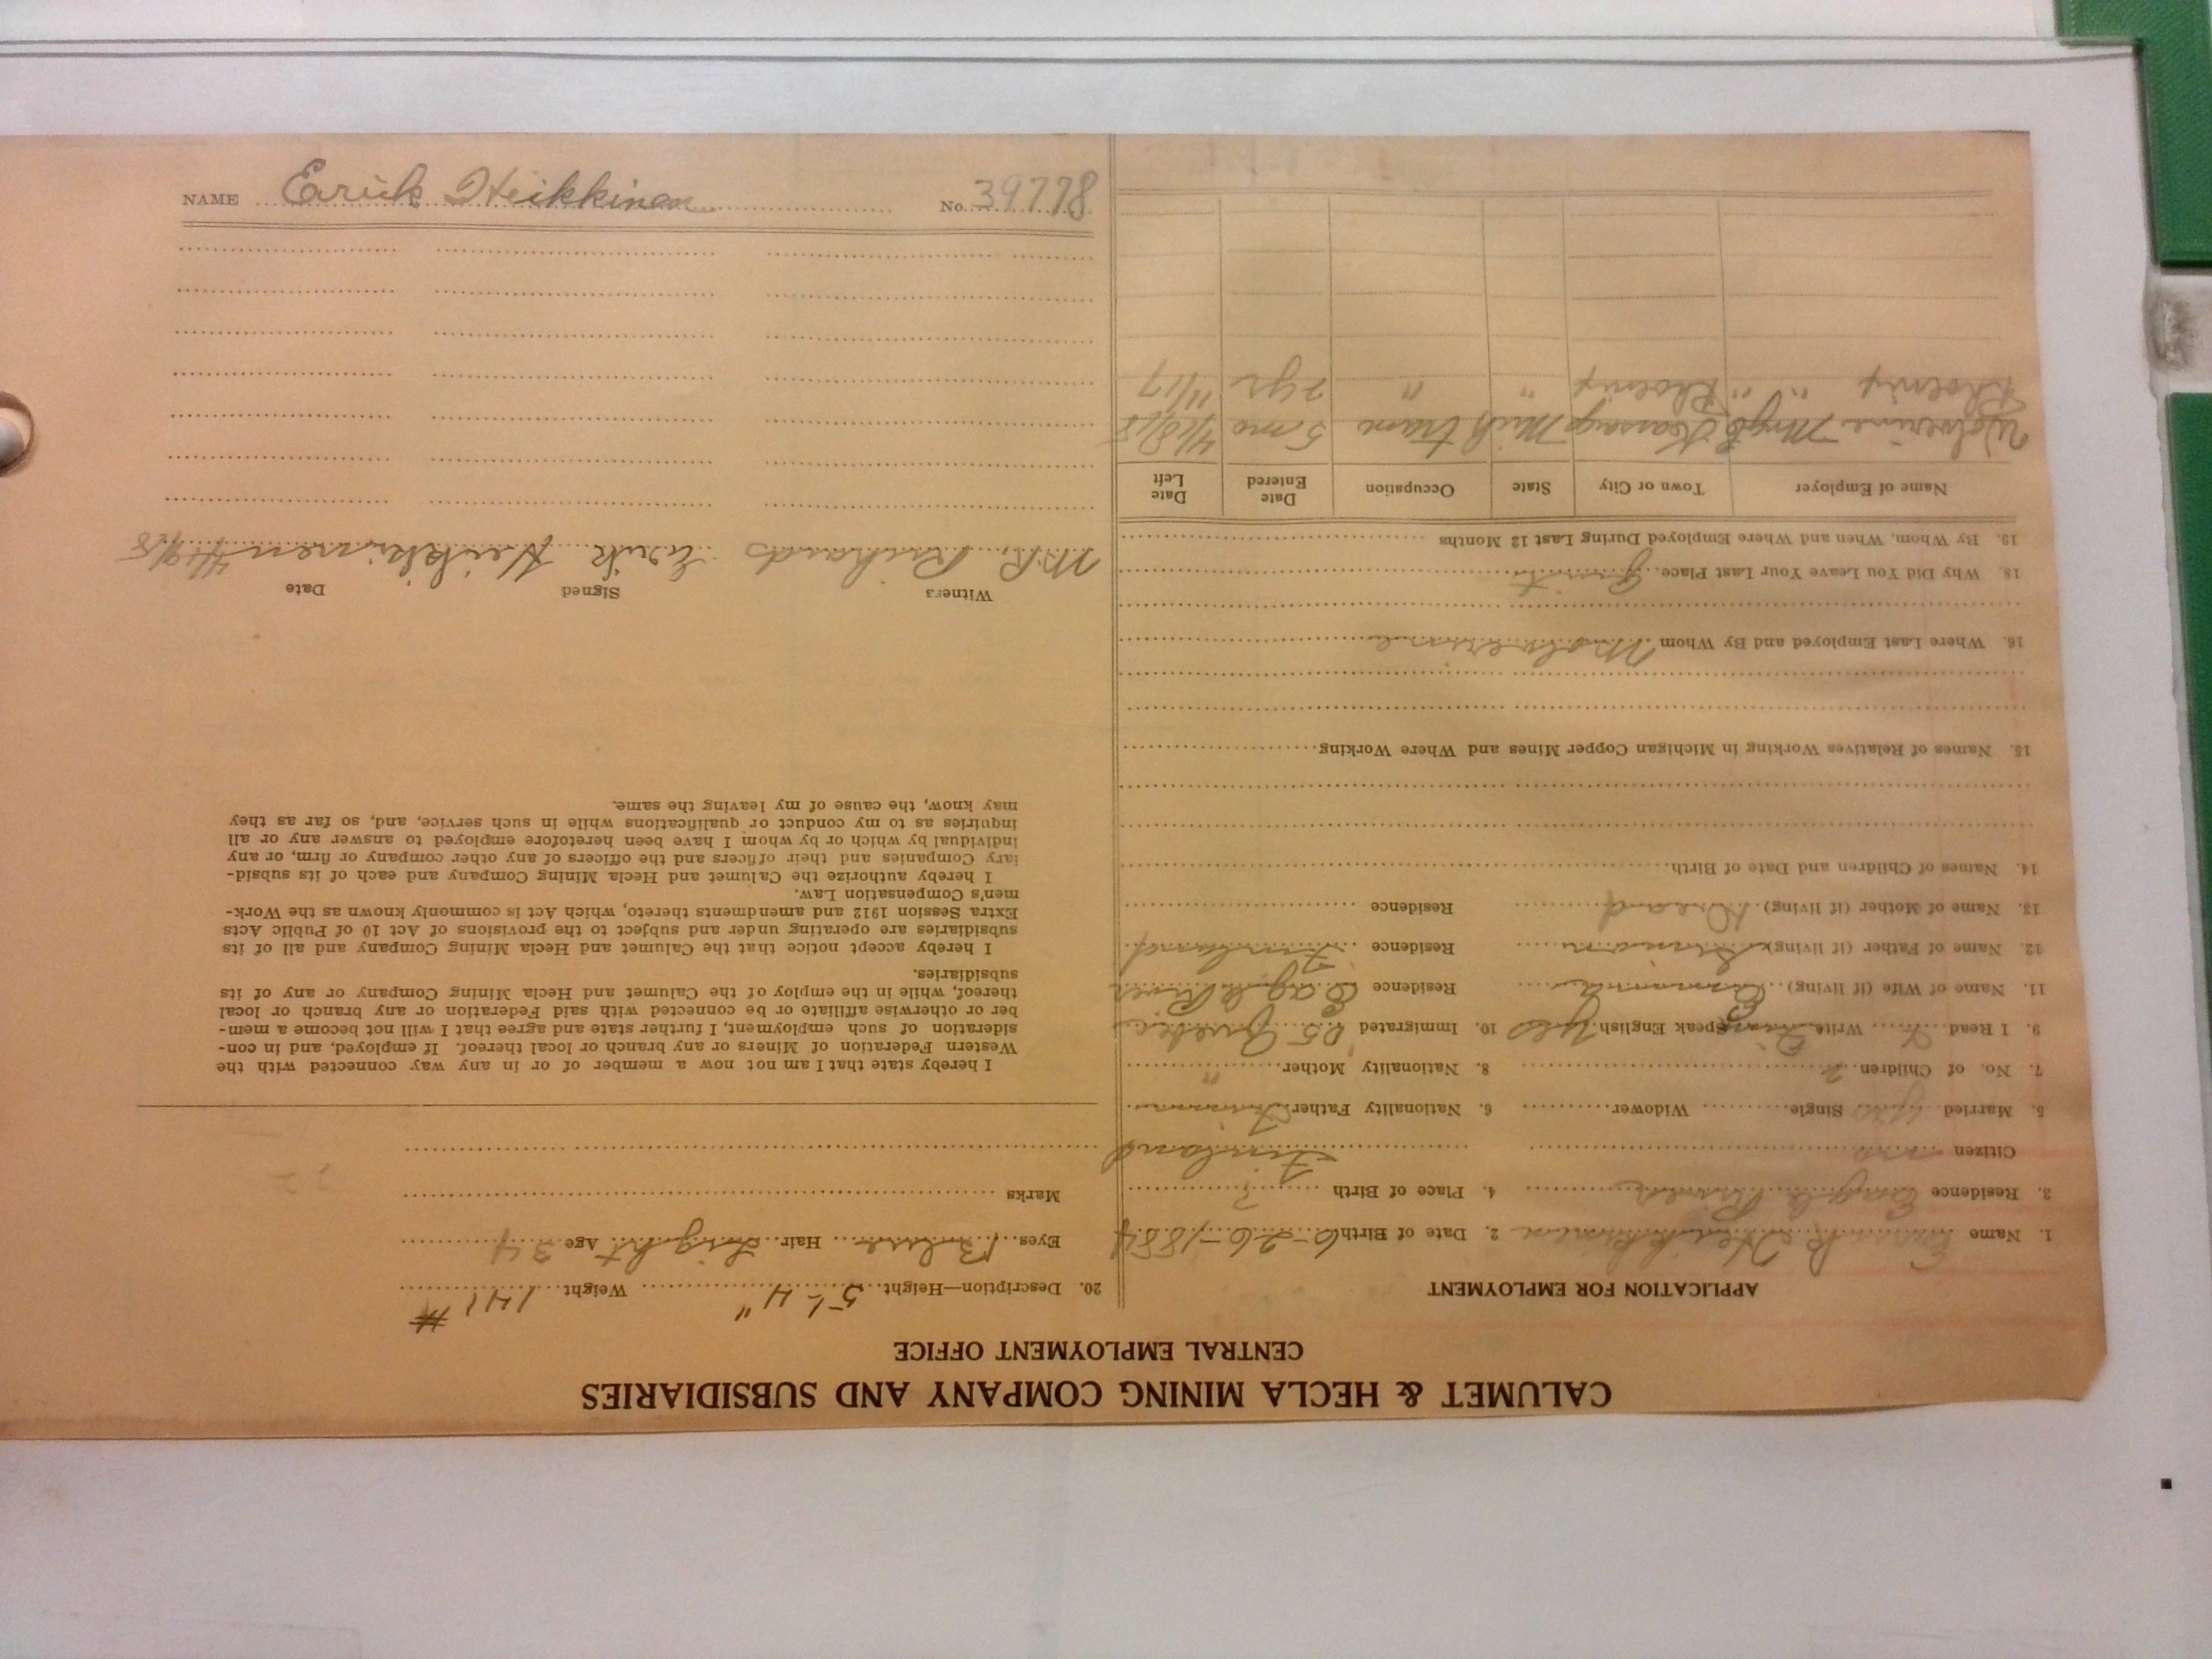 CALUMET & HECLA MINING COMPANY AND SUBSIDIARIES
CENTRAL EMPLOYMENT OFFICE
APPLICATION FOR EMPLOYMENT
1. Name Erick Heikkinen 2. Date of Birth 6-26-1884
3. Residence Eagle River 4. Place of Birth ?
Citizen no Finland
5. Married yes Single Widower 6. Nationality Father Finn
7. No. of Children 2 8. Nationality Mother "
9. I Read Write Speak English yes 10. Immigrated 05
11. Name of Wife (if living) Residence Eagle River
12. Name of Father (if living) Simon Residence Finland
13. Name of Mother (if living) Dead Residence
14. Names of Children and Date of Birth
15. Names of Relatives Working in Michigan Copper Mines and Where Working
16. Where Last Employed and By Whom Wolverine
18. Why Did You Leave Your Last Place Quit
19. By Whom, When and Where Employed During Last 12 Months
Name of Employer Town or City State Occupation Date Entered Date Left
Wolverine Mng Co Kearsarge Mich tram 5 mo 4/8/18
Phoenix " " Phoenix " " 2 yr 11/17
20. Description—Height 5' 4" Weight 141 #
Eyes Blue Hair Light Age 34
Marks
I hereby state that I am not now a member of or in any way connected with the
Western Federation of Miners or any branch or local thereof. If employed, and in con-
sideration of such employment, I further state and agree that I will not become a mem-
ber or otherwise affiliate or be connected with said Federation or any branch or local
thereof, while in the employ of the Calumet and Hecla Mining Company or any of its
subsidiaries.
I hereby accept notice that the Calumet and Hecla Mining Company and all of its
subsidiaries are operating under and subject to the provisions of Act 10 of Public Acts
Extra Session 1912 and amendments thereto, which Act is commonly known as the Work-
men's Compensation Law.
I hereby authorize the Calumet and Hecla Mining Company and each of its subsid-
iary Companies and their officers and the officers of any other company or firm, or any
individual by which or by whom I have been heretofore employed to answer any or all
inquiries as to my conduct or qualifications while in such service, and, so far as they
may know, the cause of my leaving the same.
Witness Signed Date
W.R. Richards Erik Heikkinen 4/9/18
NAME Erick Heikkinen No. 39778